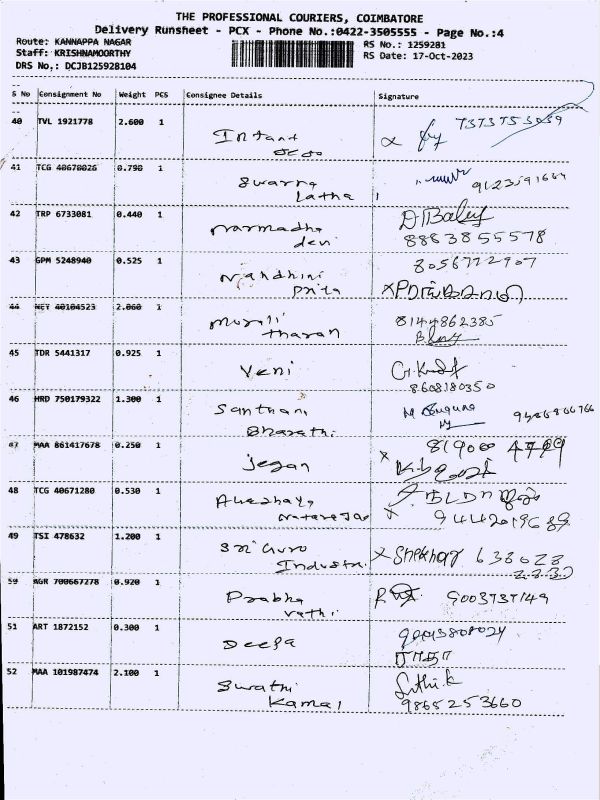 THE PROFESSIONAL COURIERS, COIMBATORE
Delivery Runsheet - PCX - Phone No.:0422-3505555 - Page No.:4
Route: KANNAPPA NAGAR
Staff: KRISHNAMOORTHY
DRS No.: DCJB125928104
RS No.: 1259281
RS Date: 17-Oct-2023
S No Consignment No Weight PCS Consignee Details Signature
40 TVL 1921778 2.600 1 Intant
41 TCG 40670026 0.790 1 Swarna Latha
42 TRP 6733081 0.440 1 Narmadha devi 8883855578
43 GPM 5248940 0.525 1 Nandhini Priya 8056772907
44 NET 40104523 2.060 1 Murali tharan 8144862385
45 TDR 5441317 0.925 1 Veni 8608180350
46 HRD 750179322 1.300 1 Santhani Bharathi
47 MAA 861417678 0.250 1 Jegan
48 TCG 40671280 0.530 1
49 TSI 478632 1.200 1 Sri Guru Industri Shekhar
50 AGR 700667278 0.920 1 Prabha vathi 9003737149
51 ART 1872152 0.300 1 Deepa
52 MAA 101987474 2.100 1 Swathi Kamal 9865253660